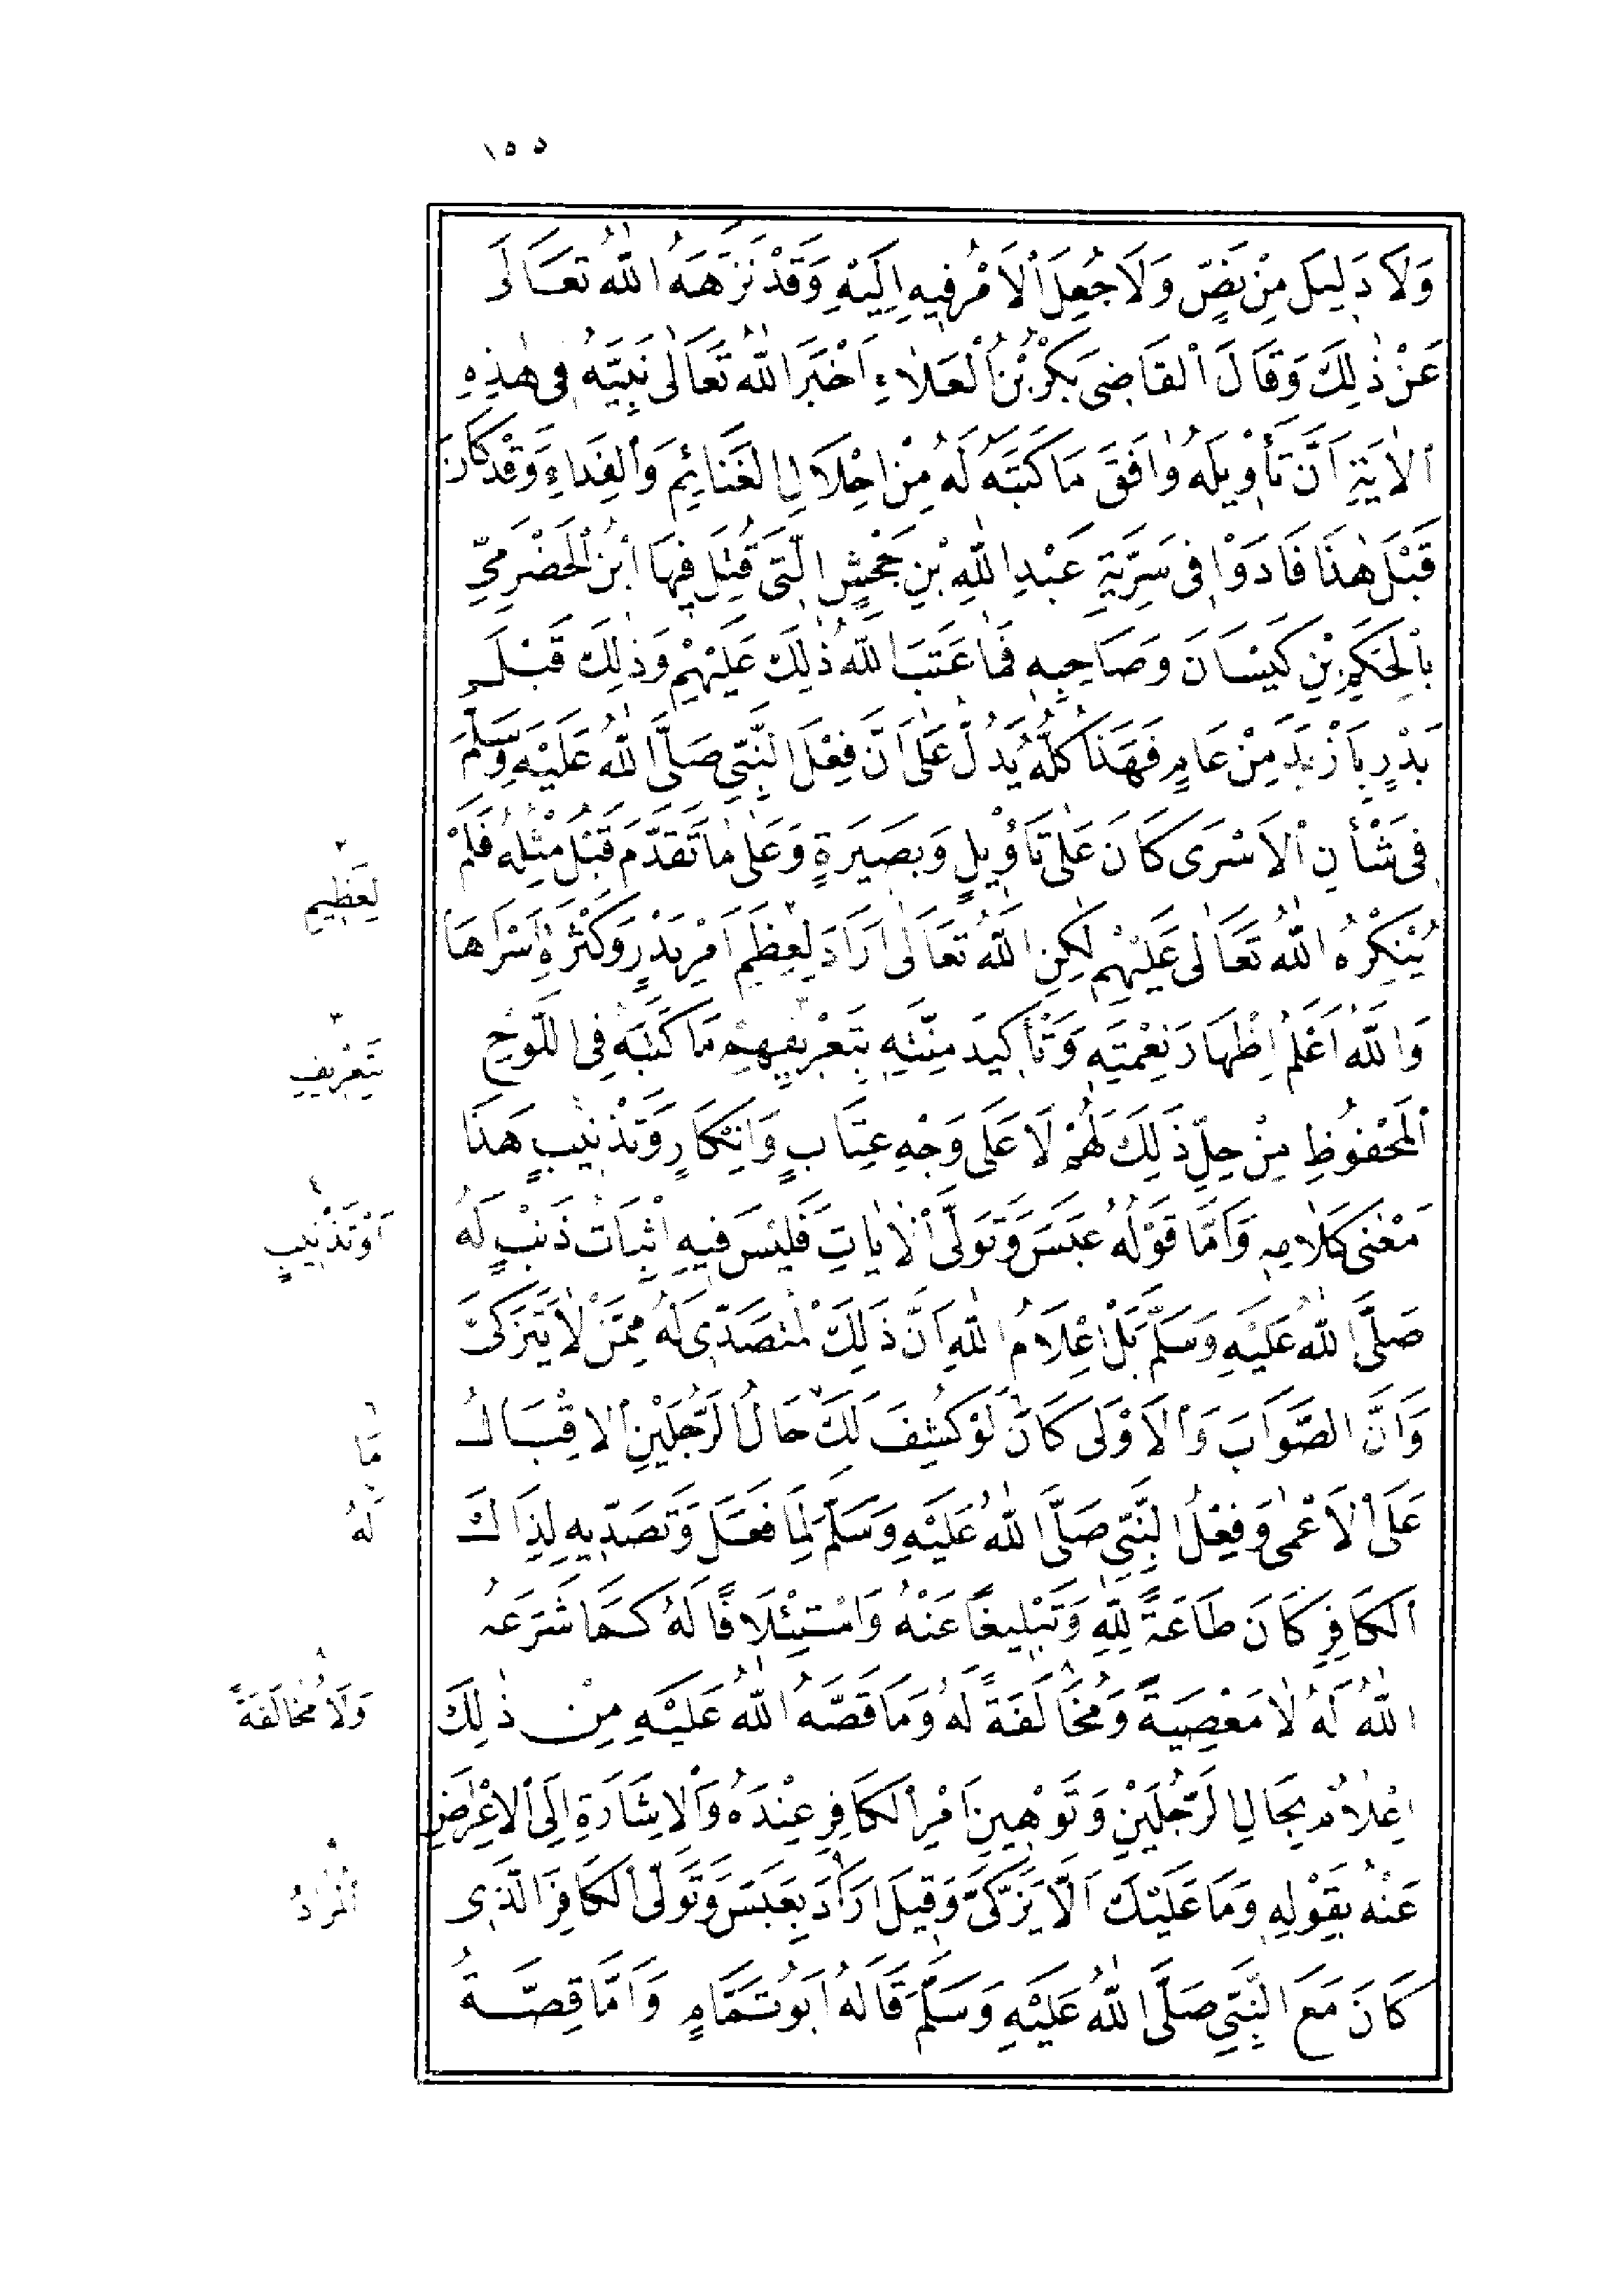 ١٥٥
وَلَا دَلِيلَ مِنْ نَصٍّ وَلَا جُعِلَ الْاَمْرُ فِيهِ اِلَيْهِ وَقَدْ نَزَّهَهُ اللهُ تَعَالَى
عَنْ ذٰلِكَ وَقَالَ الْقَاضِى بَكْرُ بْنُ الْعَلَاءِ اَخْبَرَ اللهُ تَعَالٰى نَبِيَّهُ فِى هٰذِهِ
الْاٰيَةِ اَنَّ تَأْوِيلَهُ وَافَقَ مَا كَتَبَهُ لَهُ مِنْ اِحْلَالِ الْغَنَائِمِ وَالْفِدَاءِ وَقَدْ كَانَ
قَبْلَ هٰذَا فَادَوْا فِى سَرِيَّةِ عَبْدِ اللهِ بْنِ جَحْشٍ الَّتِى قُتِلَ فِيهَا ابْنُ الْحَضْرَمِيِّ
بِالْحَكَمِ بْنِ كَيْسَانَ وَصَاحِبِهِ فَمَا عَتَبَ اللهُ ذٰلِكَ عَلَيْهِمْ وَذٰلِكَ قَبْلَ
بَدْرٍ بِاَزْيَدَ مِنْ عَامٍ فَهَذَا كُلُّهُ يَدُلُّ عَلَى اَنَّ فِعْلَ النَّبِيِّ صَلَّى اللهُ عَلَيْهِ وَسَلَّمَ
فِى شَأْنِ الْاَسْرَى كَانَ عَلٰى تَأْوِيلٍ وَبَصِيرَةٍ وَعَلٰى مَا تَقَدَّمَ قَبْلُ مِثْلُهُ فَلَمْ
يُنْكِرْهُ اللهُ تَعَالٰى عَلَيْهِمْ لٰكِنِ اللهُ تَعَالٰى اَرَادَ لِعِظَمِ اَمْرِ بَدْرٍ وَكَثْرَةِ اَسْرَاهَا
وَاللهُ اَعْلَمُ اِظْهَارَ نِعْمَتِهِ وَتَأْكِيدَ مِنَّتِهِ بِتَعْرِيفِهِمْ مَا كَتَبَهُ فِى اللَّوْحِ
الْمَحْفُوظِ مِنْ حِلِّ ذَلِكَ لَهُمْ لَا عَلَى وَجْهِ عِتَابٍ وَاِنْكَارٍ وَتَذْنِيبٍ هَذَا
مَعْنٰى كَلَامِهِ وَاَمَّا قَوْلُهُ عَبَسَ وَتَوَلَّى الْاٰيَاتِ فَلَيْسَ فِيهِ اِثْبَاتُ ذَنْبٍ لَهُ
صَلَّى اللهُ عَلَيْهِ وَسَلَّمَ بَلْ اِعْلَامُ اللهِ اَنَّ ذَلِكَ الْمُتَصَدَّى لَهُ مِمَّنْ لَا يَتَزَكَّى
وَاَنَّ الصَّوَابَ وَالْاَوْلَى كَانَ لَوْ كُشِفَ لَكَ حَالُ الرَّجُلَيْنِ الْاِقْبَالُ
عَلَى الْاَعْمٰى وَفِعْلُ النَّبِيِّ صَلَّى اللهُ عَلَيْهِ وَسَلَّمَ لِمَا فَعَلَ وَتَصَدِّيهِ لِذَاكَ
الْكَافِرِ كَانَ طَاعَةً لِلّٰهِ وَتَبْلِيغاً عَنْهُ وَاسْتِئْلَافًا لَهُ كَمَا شَرَعَهُ
اللهُ لَهُ لَا مَعْصِيَةً وَمُخَالَفَةً لَهُ وَمَا قَصَّهُ اللهُ عَلَيْهِ مِنْ ذٰلِكَ
اِعْلَامٌ بِحَالِ الرَّجُلَيْنِ وَتَوْهِينِ اَمْرِ الْكَافِرِ عِنْدَهُ وَالْاِشَارَةِ اِلَى الْاِعْرَاضِ
عَنْهُ بِقَوْلِهِ وَمَا عَلَيْكَ اَلَّا يَزَّكَّى وَقِيلَ اَرَادَ بِعَبَسَ وَتَوَلّٰى الْكَافِرَ الَّذِى
كَانَ مَعَ النَّبِيِّ صَلَّى اللهُ عَلَيْهِ وَسَلَّمَ قَالَهُ اَبُو تَمَّامٍ وَاَمَّا قِصَّةُ
٢
لِعَظِيمِ
٣
بِتَعْرِيفِ
٤
اَوْ تَذْنِيبٍ
٦
مَا
لَهُ
٨
وَلَا مُخَالَفَةً
٩
الْمُرَادُ